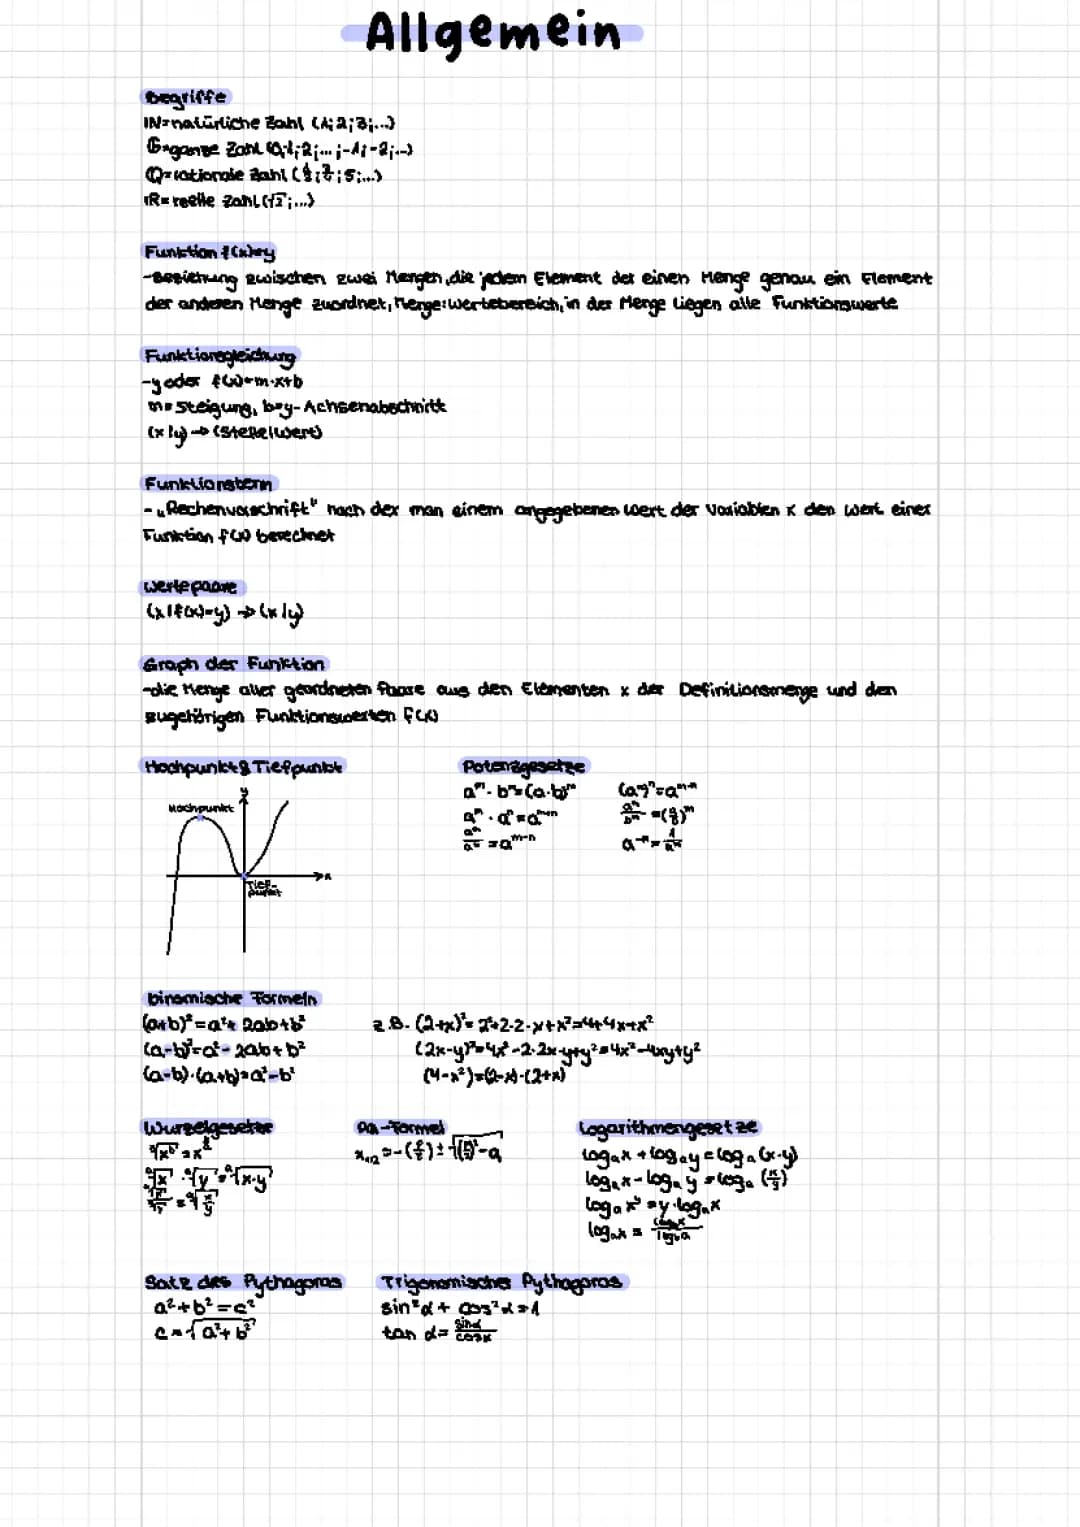 Allgemein
Begriffe
IN=natürliche Zahl (1;2;3;...)
G=ganze Zahl (0;1;2;...;-1;-2;...)
Q=rationale Zahl (
;5;...)
IR=reelle Zahl (√2;...)
Funktion f(x)=y
-Beziehung zwischen zwei Mengen, die jedem Element der einen Menge genau ein Element
der anderen Menge zuordnet, Menge:Wertebereich, in der Menge liegen alle Funktionswerte
Funktionsgleichung
-y oder f(x)=m·x+b
m=Steigung, b=y-Achsenabschnitt
(x|y)→(Stelle|Wert)
Funktionsterm
-„Rechenvorschrift" nach der man einem angegebenen Wert der Variablen x den Wert einer
Funktion f(x) berechnet
Wertepaare
(x|f(x)=y)→(x|y)
Graph der Funktion
-die Menge aller geordneten Paare aus den Elementen x der Definitionsmenge und den
zugehörigen Funktionswerten f(x)
Hochpunkt&Tiefpunkt
y
Hochpunkt
x
Tief-
punkt
Potenzgesetze
aᵐ·bᵐ=(a·b)ᵐ
aᵐ·aⁿ=aᵐ⁺ⁿ
aᵐ/aⁿ=aᵐ⁻ⁿ
(aᵐ)ⁿ=aᵐ·ⁿ
aᵐ/bᵐ=(a/b)ᵐ
a⁻ⁿ=1/aⁿ
binomische Formeln
(a+b)²=a²+2ab+b²
(a-b)²=a²-2ab+b²
(a-b)·(a+b)=a²-b²
z.B. (2+x)²=2²+2·2·x+x²=4+4x+x²
(2x-y)²=4x²-2·2x·y+y²=4x²-4xy+y²
(4-x²)=(2-x)·(2+x)
Wurzelgesetze
ᵃ√xᵇ=x^(b/a)
ᵃ√x·ᵃ√y=ᵃ√x·y
ᵃ√x/ᵃ√y=ᵃ√(x/y)
pq-Formel
x₁,₂=-(p/2)±√(p/2)²-q
Logarithmengesetze
logₐx+logₐy=logₐ(x·y)
logₐx-logₐy=logₐ(x/y)
logₐxʸ=y·logₐx
logₐx=
Satz des Pythagoras
a²+b²=c²
c=√a²+b²
Trigonomischer Pythagoras
sin²α+cos²α=1
tan α=sinα/cosα